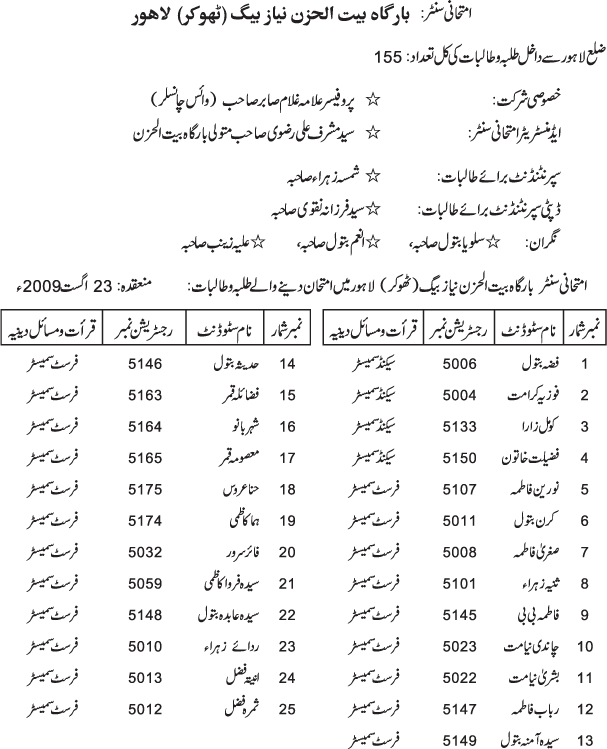 امتحانی سنٹر: بارگاہ بیت الحزن نیاز بیگ (ٹھوکر) لاہور
ضلع لاہور سے داخل طلبہ و طالبات کی کل تعداد: 155
خصوصی شرکت: ☆ پروفیسر علامہ غلام صابر صاحب (وائس چانسلر)
ایڈمنسٹریٹر امتحانی سنٹر: ☆ سید مشرف علی رضوی صاحب متولی بارگاہ بیت الحزن
سپرنٹنڈنٹ برائے طالبات: ☆ شمسہ زہراء صاحبہ
ڈپٹی سپرنٹنڈنٹ برائے طالبات: ☆ سید فرزانہ نقوی صاحبہ
نگران: ☆ سلویا بتول صاحبہ، ☆ انعم بتول صاحبہ، ☆ علیہ زینب صاحبہ
امتحانی سنٹر بارگاہ بیت الحزن نیاز بیگ (ٹھوکر) لاہور میں امتحان دینے والے طلبہ و طالبات: منعقدہ: 23 اگست 2009ء
نمبر شمار نام سٹوڈنٹ رجسٹریشن نمبر قرأت و مسائل دینیہ
1 فضہ بتول 5006 سیکنڈ سمیسٹر
2 فوزیہ کرامت 5004 سیکنڈ سمیسٹر
3 کومل زارا 5133 سیکنڈ سمیسٹر
4 فضیلت خاتون 5150 سیکنڈ سمیسٹر
5 نورین فاطمہ 5107 فرسٹ سمیسٹر
6 کرن بتول 5011 فرسٹ سمیسٹر
7 صغریٰ فاطمہ 5008 فرسٹ سمیسٹر
8 ثنیہ زہراء 5101 فرسٹ سمیسٹر
9 فاطمہ بی بی 5145 فرسٹ سمیسٹر
10 چاندی نیامت 5023 فرسٹ سمیسٹر
11 بشریٰ نیامت 5022 فرسٹ سمیسٹر
12 رباب فاطمہ 5147 فرسٹ سمیسٹر
13 سیدہ آمنہ بتول 5149 فرسٹ سمیسٹر
نمبر شمار نام سٹوڈنٹ رجسٹریشن نمبر قرأت و مسائل دینیہ
14 حدیثہ بتول 5146 فرسٹ سمیسٹر
15 فضائلہ قمر 5163 فرسٹ سمیسٹر
16 شہر بانو 5164 فرسٹ سمیسٹر
17 معصومہ قمر 5165 فرسٹ سمیسٹر
18 حنا عروس 5175 فرسٹ سمیسٹر
19 ہما کاظمی 5174 فرسٹ سمیسٹر
20 فائز سرور 5032 فرسٹ سمیسٹر
21 سیدہ فروا کاظمی 5059 فرسٹ سمیسٹر
22 سیدہ عابدہ بتول 5148 فرسٹ سمیسٹر
23 ردائے زہراء 5010 فرسٹ سمیسٹر
24 فضل 5013 فرسٹ سمیسٹر
25 ثمرہ فضل 5012 فرسٹ سمیسٹر